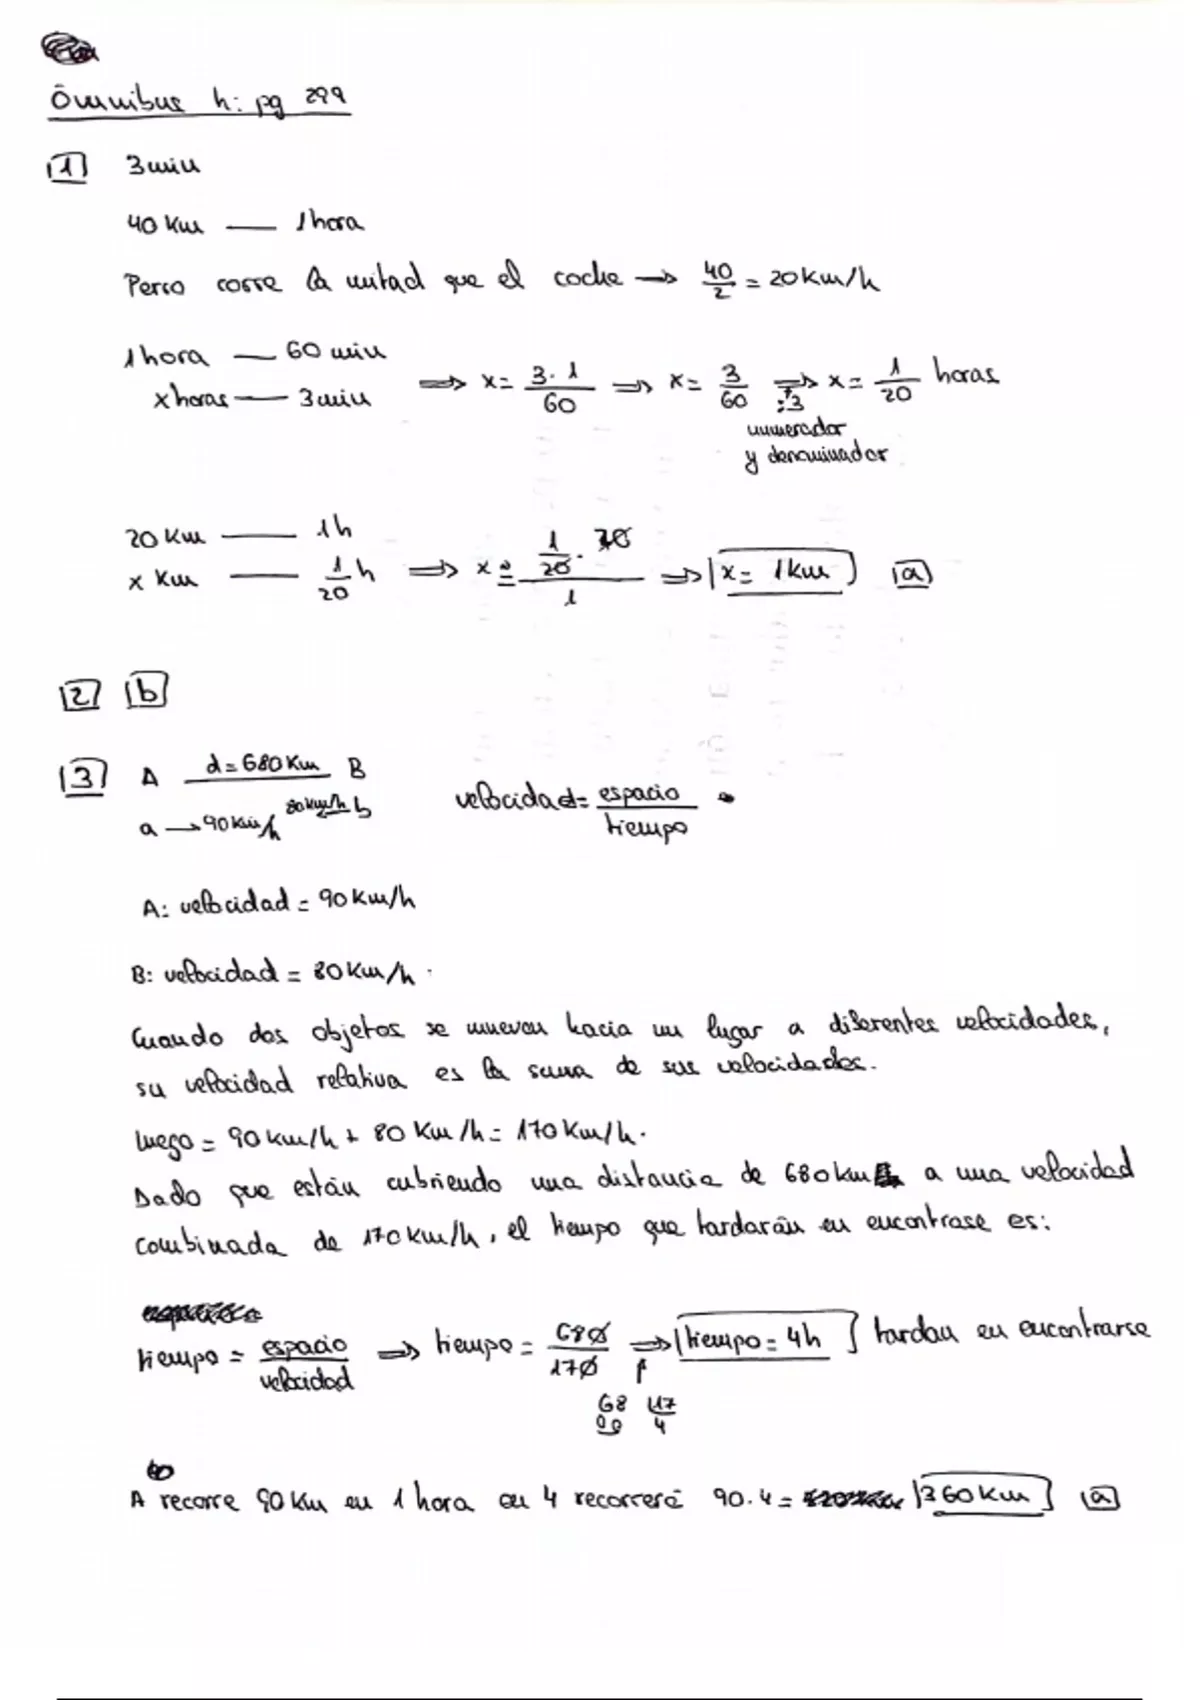 Ómnibus h: pg 299
1 3 min
40 Km — 1 hora
Perro corre la mitad que el coche → 40/2 = 20 Km/h
1 hora — 60 min
x horas — 3 min ⇒ x = 3·1/60 ⇒ x = 3/60 ⇒ :3 x = 1/20 horas
numerador
y denominador
20 Km — 1h
x Km — 1/20 h ⇒ x = 1/20 · 20 / 1 ⇒ x = 1 Km a
2 b
3 A d = 680 Km B
a → 90 Km/h 80 Km/h b velocidad = espacio/tiempo
A: velocidad = 90 Km/h
B: velocidad = 80 Km/h.
Cuando dos objetos se mueven hacia un lugar a diferentes velocidades,
su velocidad relativa es la suma de sus velocidades.
luego = 90 Km/h + 80 Km/h = 170 Km/h.
Dado que están cubriendo una distancia de 680 km a una velocidad
combinada de 170 Km/h, el tiempo que tardarán en encontrase es:
tiempo = espacio/velocidad ⇒ tiempo = 680/170 ⇒ tiempo = 4h tardan en encontrarse
68 17
00 4
A recorre 90 Km en 1 hora en 4 recorrerá 90·4 = 360 Km a